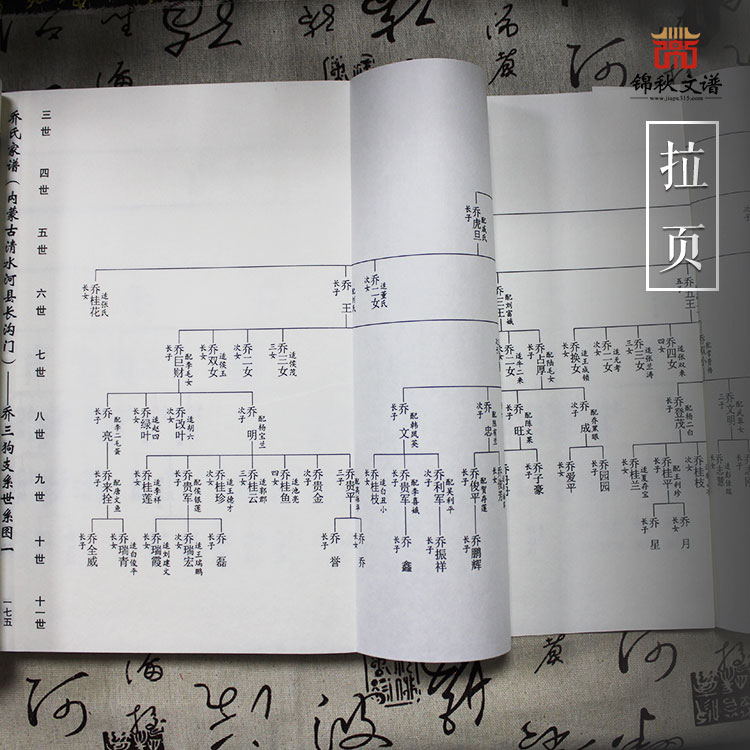 锦秋文谱
www.jiapu315.com
拉页
乔氏家谱（内蒙古清水河县长沟门）——乔三狗支系世系图一
一七五
三世
四世
五世
六世
七世
八世
九世
十世
十一世
长子 乔虎旦 配戚氏
长女 乔桂花 适张氏
长子 乔王
次女 乔二女 适董氏
三子 乔三王 配刘富娥
五子 乔五王
长子 乔巨财 配李毛女
长女 乔双女 适侯玉
次女 乔二女
三女 乔三女 适侯茂
乔二女 适牛二来
长子 乔占厚 配陆毛女
长女 乔换女 适王成锁
次女 乔二女 适元考
三女 乔三女 适张兰涛
四女 乔四女 适张双来
长子 乔亮 配李二毛蛋
长女 乔绿叶 适赵四
次女 乔改叶 适胡六
次子 乔明 配杨宝兰
长子 乔文 配韩凤英
次子 乔忠
长子 乔旺 配陈文果
次子 乔成 配乔黑眼
长子 乔登茂 配杨二白
乔文明
长子 乔来拴 配唐文鱼
长女 乔桂莲 适李祥
长子 乔贵军 配侯银莲
次女 乔桂珍 适王德才
三女 乔桂云 适郭郡
四女 乔桂鱼 适池亮
次子 乔贵金
三子 乔贵平
长女 乔桂枝 适白及小
长子 乔贵军 配李喜娥
次子 乔利军 配吴利平
长子 乔俊平 配贺存莲
长子 乔子豪
长女 乔爱平
次子 乔园园
长女 乔桂兰 适夏存宝
长子 乔桂平 配王利珍
次女 乔桂枝
长子 乔全威
长女 乔瑞青 适白俊平
长女 乔瑞霞 适刘建文
次女 乔瑞宏 适王瑞鹏
长子 乔磊
长子 乔誉
长子 乔鑫
长子 乔振祥
长子 乔鹏辉
长子 乔星
长女 乔月